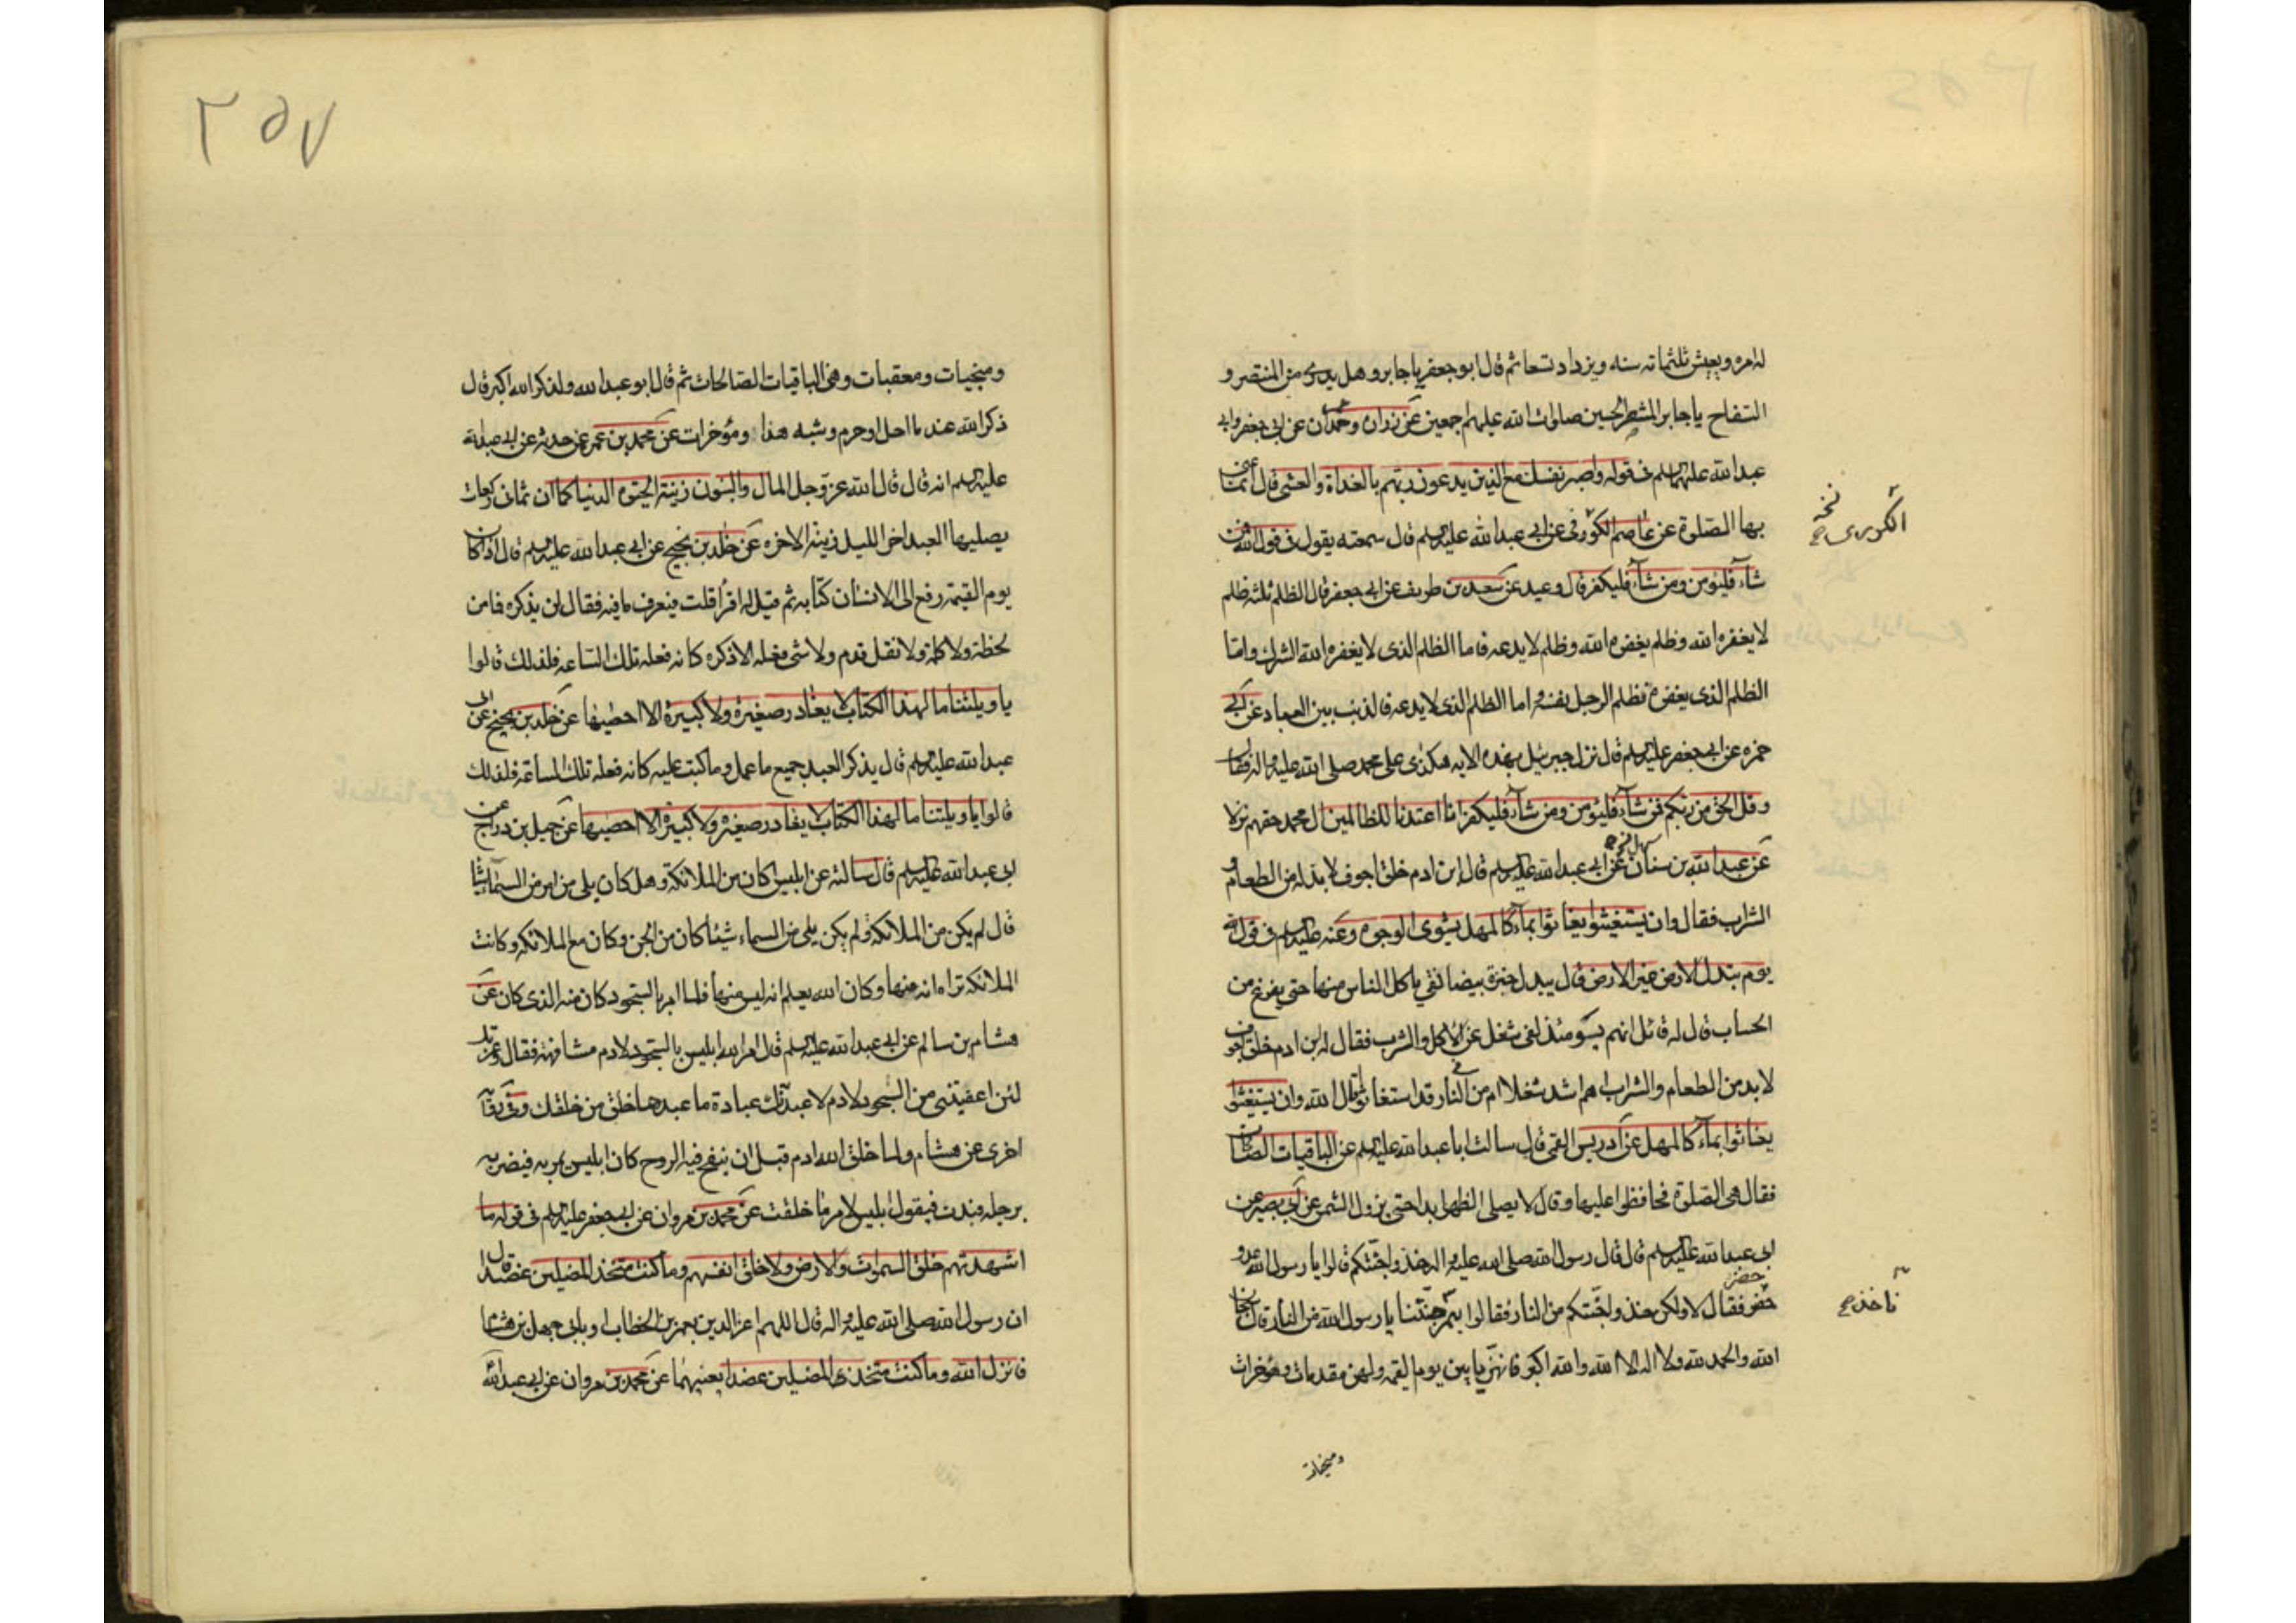 له امره ويعيش ثلثمائه سنه ويزداد تسعا ثم قال ابو جعفر يا جابر وهل يدرى من المنتصر و
السفاح يا جابر المنتصر الحسين صلوات الله عليهم اجمعين عن زرارة وحمران عن ابى جعفر وابى
عبد الله عليهما السلم فى قوله واصبر نفسك مع الذين يدعون ربهم بالغداة والعشى قال انما عنى
بها الصلوة عن عاصم الكوزى عن ابى عبد الله عليه السلم قال سمعته يقول فى قول الله فمن
الكوزى نسخه
شاء فليؤمن ومن شاء فليكفر قال وعيد عن سعد بن طريف عن ابى جعفر قال الظلم ثلثه ظلم
لا يغفره الله وظلم يغفره الله وظلم لا يدعه فاما الظلم الذى لا يغفره الله الشرك واما
الظلم الذى يغفره فظلم الرجل نفسه واما الظلم الذى لا يدعه فالذنب بين العباد عن ابى
حمزه عن ابى جعفر عليه السلم قال نزل جبرئيل بهذه الايه هكذى على محمد صلى الله عليه واله فقال
وقل الحق من ربكم فمن شاء فليؤمن ومن شاء فليكفر انا اعتدنا للظالمين ال محمد حقهم نارا
عن عبد الله بن سنان عن ابى عبد الله عليه السلم قال ان ابن ادم خلق اجوف لا بد له من الطعام و
الشراب فقال وان يستغيثوا يغاثوا بماء كالمهل يشوى الوجوه وعنه عليه السلم فى قوله
يوم تبدل الارض غير الارض قال يبدل خبزة بيضا نقى ياكل الناس منها حتى يفرغ من
الحساب قال له قائل انهم يومئذ لفى شغل عن الاكل والشرب فقال له ابن ادم خلق اجوف
لا بد من الطعام والشراب اهم اشد شغلا ام من فى النار قد استغاثوا قال الله وان يستغيثوا
يغاثوا بماء كالمهل عن ادريس القمى قال سالت ابا عبد الله عليه السلم عن الباقيات الصالحات
فقال هى الصلوة فحافظوا عليها وقال لا يصلى الظهر ابدا حتى يزول الشمس عن ابى بصير عن
ابى عبد الله عليه السلم قال قال رسول الله صلى الله عليه واله خذوا جنتكم قالوا يا رسول الله عدو
حضر فقال لا ولكن خذوا جنتكم من النار فقالوا بم جنتنا يا رسول الله من النار قال سبحان
الله والحمد لله ولا اله الا الله والله اكبر فانهن ياتين يوم القيمه ولهن مقدمات ومؤخرات
ومنجيات
٢٥٧
ومنجيات ومعقبات وهن الباقيات الصالحات ثم قال ابو عبد الله ولذكر الله اكبر قال
ذكر الله عند ما احل او حرم وشبه هذا ومؤخرات عن محمد بن عمر عمن حدثه عن ابى عبد الله
عليه السلم انه قال قال الله عز وجل المال والبنون زينة الحيوة الدنيا كما ان ثمان ركعات
يصليها العبد اخر الليل زينة الاخره عن خلد بن نجيح عن ابى عبد الله عليه السلم قال اذا كان
يوم القيمه رفع الى الانسان كتابه ثم قيل له اقرأ قلت فيعرف ما فيه فقال ان يذكره فما من
لحظة ولا كلمة ولا نقل قدم ولا شى فعله الا ذكره كانه فعله تلك الساعه فلذلك قالوا
يا ويلتنا ما لهذا الكتاب لا يغادر صغيرة ولا كبيرة الا احصيها عن خلد بن نجيح عن ابى
عبد الله عليه السلم قال يذكر العبد جميع ما عمل وما كتب عليه كانه فعله تلك الساعة فلذلك
قالوا يا ويلتنا ما لهذا الكتاب لا يغادر صغيره ولا كبيرة الا احصيها عن جميل بن دراج عن
ابى عبد الله عليه السلم قال سالته عن ابليس اكان من الملائكة وهل كان يلى من امر من السماء شيئا
قال لم يكن من الملائكة ولم يكن يلى من السماء شيئا كان من الجن وكان مع الملائكه وكانت
الملائكه تراه انه منها وكان الله يعلم انه ليس منها فلما امر بالسجود كان منه الذى كان عن
هشام بن سالم عن ابى عبد الله عليه السلم قال امر الله ابليس بالسجود لادم مشافهة فقال وعزتك
لئن اعفيتنى من السجود لادم لاعبدنك عبادة ما عبدها خلق من خلقك وفى رواية
اخرى عن هشام ولما خلق الله ادم قبل ان ينفخ فيه الروح كان ابليس يمر به فيضربه
برجله فيدب فيقول ابليس لامر ما خلقت عن محمد بن مروان عن ابى جعفر عليه السلم فى قوله ما
اشهدتهم خلق السموات والارض ولا خلق انفسهم وما كنت متخذ المضلين عضدا قال
ان رسول الله صلى الله عليه واله قال اللهم اعز الدين بعمر بن الخطاب او بابى جهل بن هشام
فانزل الله وما كنت متخذى المضلين عضدا يعنيهما عن محمد بن مروان عن ابى عبد الله